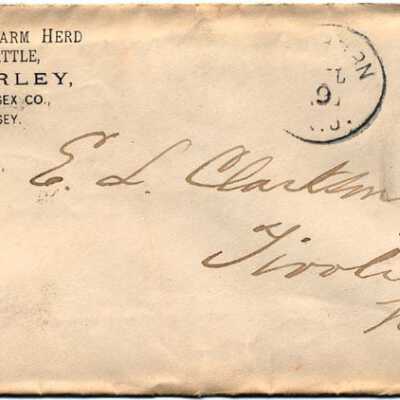 ARM HERD
TTLE,
RLEY,
SEX CO.,
SEY.
E. L. Clarkson
Tivoli
N